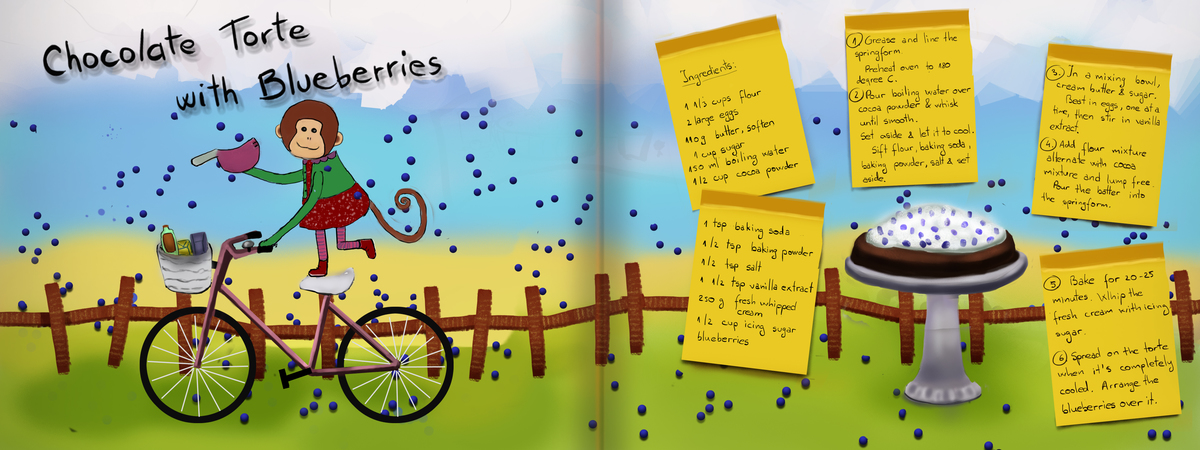 Chocolate Torte
with Blueberries
Ingredients:
1 1/3 cups flour
2 large eggs
110g butter, soften
1 cup sugar
150 ml boiling water
1/2 cup cocoa powder
1 tsp baking soda
1/2 tsp baking powder
1/2 tsp salt
1 1/2 tsp vanilla extract
250 g fresh whipped
cream
1/2 cup icing sugar
blueberries
1 Grease and line the
springform.
Preheat oven to 180
degree C.
2 Pour boiling water over
cocoa powder & whisk
until smooth.
Set aside & let it to cool.
Sift flour, baking soda,
baking powder, salt & set
aside.
3. In a mixing bowl,
cream butter & sugar.
Beat in eggs, one at a
time, then stir in vanilla
extract.
4 Add flour mixture
alternate with cocoa
mixture and lump free.
Pour the batter into
the springform.
5 Bake for 20-25
minutes. Whip the
fresh cream with icing
sugar.
6 Spread on the torte
when it's completely
cooled. Arrange the
blueberries over it.